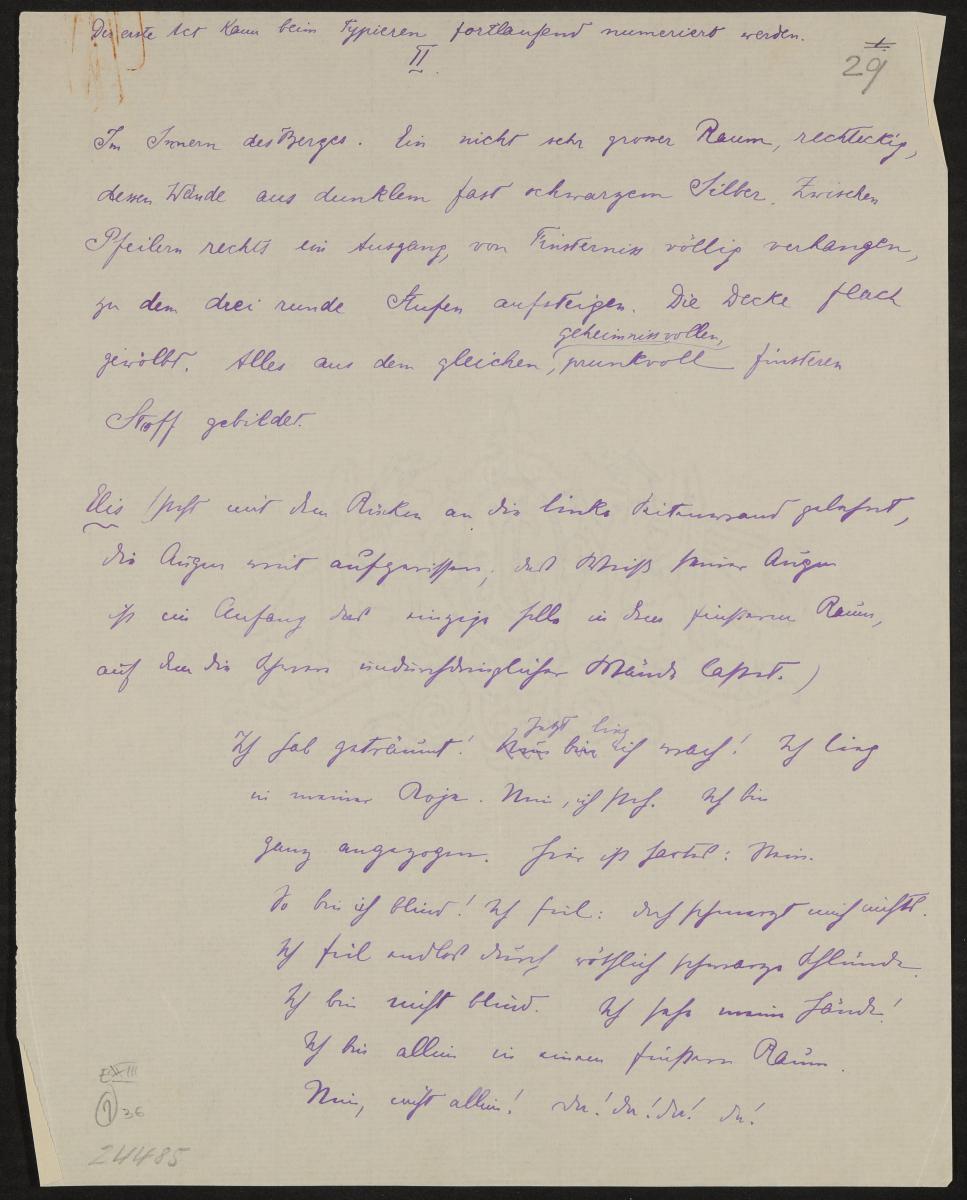 Der erste Act kann beim Typieren fortlaufend numeriert werden.
II.
29
Im Innern des Berges. Ein nicht sehr grosser Raum, rechteckig,
dessen Wände aus dunklem fast schwarzem Silber. Zwischen
Pfeilern rechts ein Ausgang, von Finsterniss völlig verhangen,
zu dem drei runde Stufen aufsteigen. Die Decke flach
geheimnissvollen,
gewölbt. Alles aus dem gleichen, prunkvoll finsteren
Stoff gebildet.
Elis (steht mit dem Rücken an die linke Seitenwand gelehnt,
die Augen weit aufgerissen, das Weiß seiner Augen
ist im Anfang das einzige helle in dem finsteren Raum,
auf dem die Schwere undurchdringlicher Wände lastet.)
Jetzt lieg
Ich hab geträumt! Nun bin ich wach! Ich lieg
in meiner Koje. Nein, ich steh. Ich bin
ganz angezogen. Hier ist hartes: Stein.
So bin ich blind! Ich fiel: doch schmerzt mich nichts.
Ich fiel endlos durch röthlich schwarze Schlünde.
Ich bin nicht blind. Ich sehe meine Hände!
Ich bin allein in einem finstern Raum.
Nein, nicht allein! du! du! du! du!
E III
36
24485